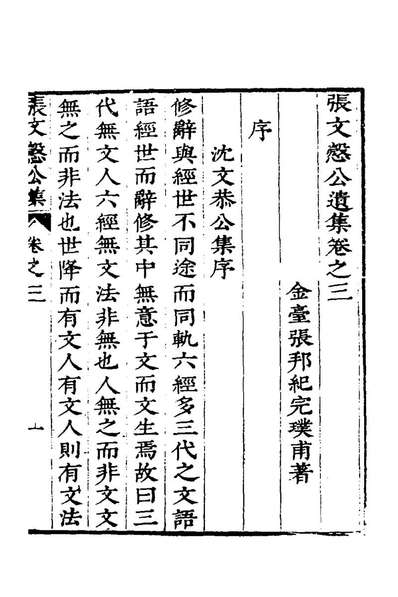 張文慤公遺集卷之三
金臺張邦紀完璞甫著
序
沈文恭公集序
修辭與經世不同途而同軌六經多三代之文語
語經世而辭修其中無意于文而文生焉故曰三
代無文人六經無文法非無也人無之而非文文
無之而非法也世降而有文人有文人則有文法
張文慤公集 卷之三 一